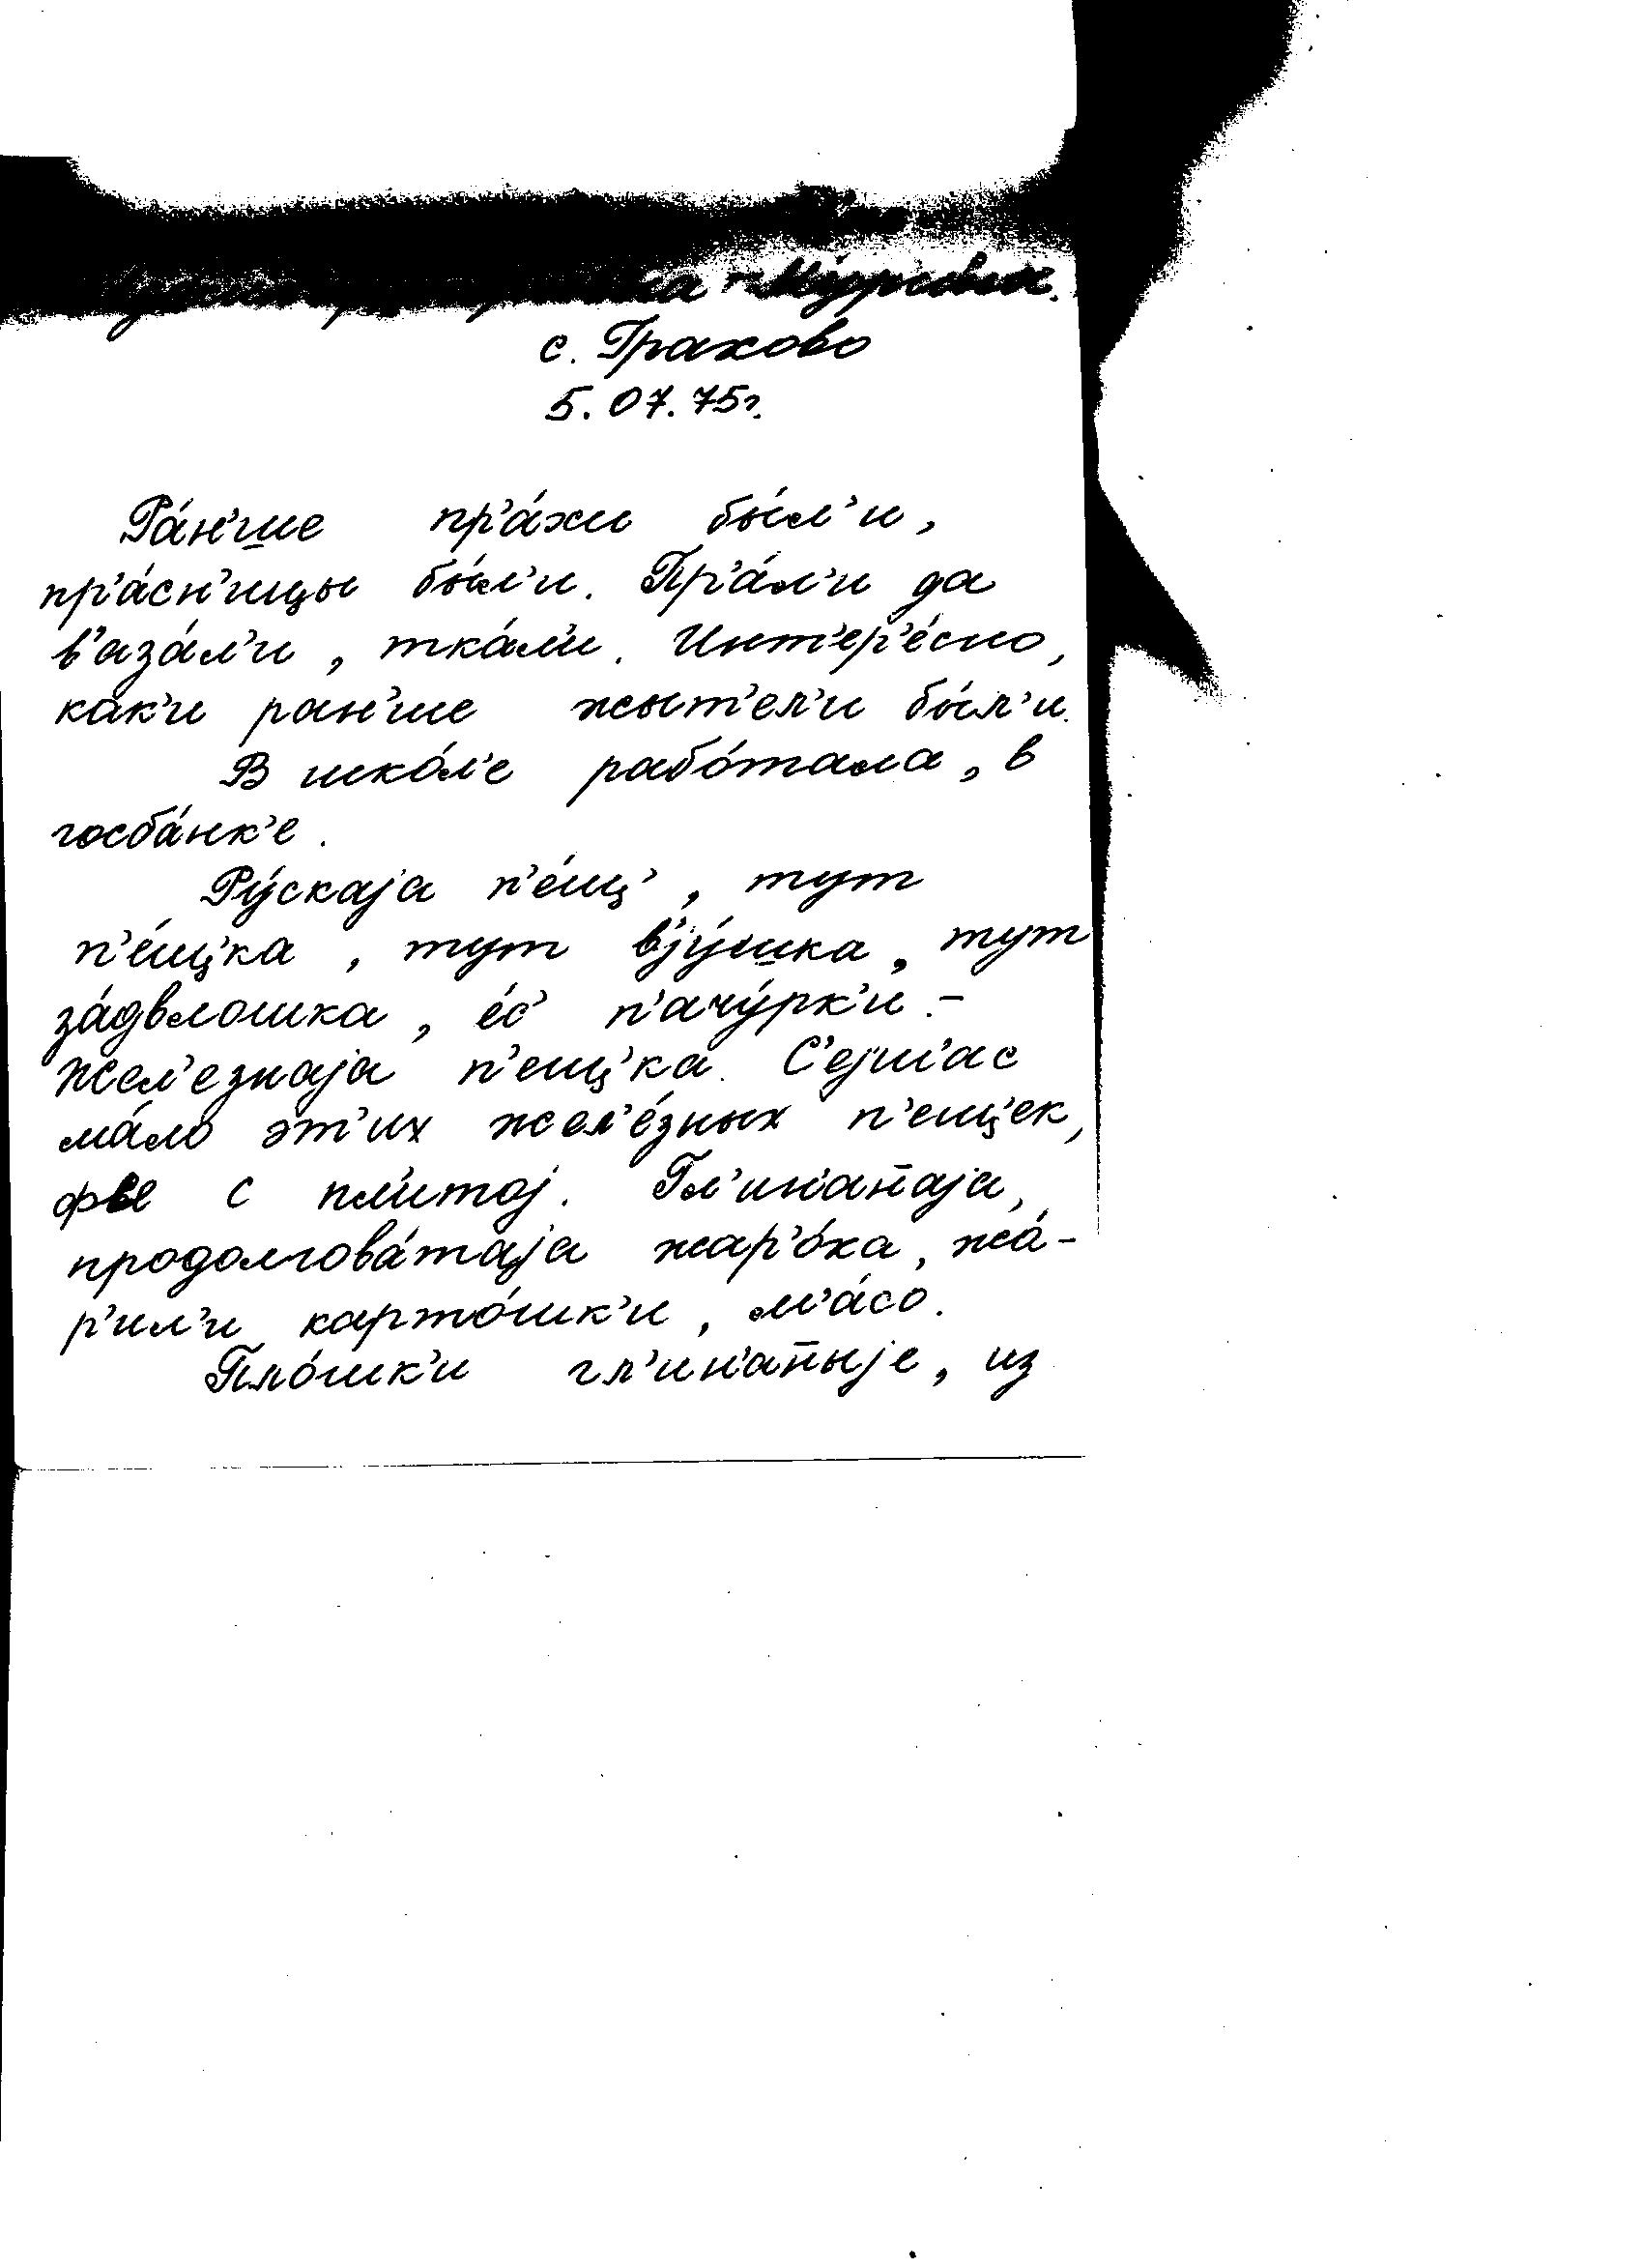 с. Грахово
5.07.75г.
Ра́н'ше пр'а́хи бы́л'и,
пр'а́сн'ицы бы́л'и. Пр'а́л'и да
в'аза́л'и, тка́л'и. Инт'ер'е́сно,
как'и ран'ше жыт'ел'и бы́л'и.
В шко́л'е рабо́тала, в
госба́нк'е.
Ру́скаjа п'е́щ', тут
п'е́щ'ка, тут в'jу́шка, тут
за́двлошка, е́с' п'ачу́рк'и -
жел'езнаjа п'ещ'ка. С'еjш'ас
ма́ло эт'их жел'е́зных п'ещ'ек,
фсе с пл'итоj. Гл'ин'анаjа,
продолгова́таjа жар'о́ха, жа́-
р'ил'и карто́шк'и, м'а́со.
Пло́шк'и гл'ин'аныjе, из